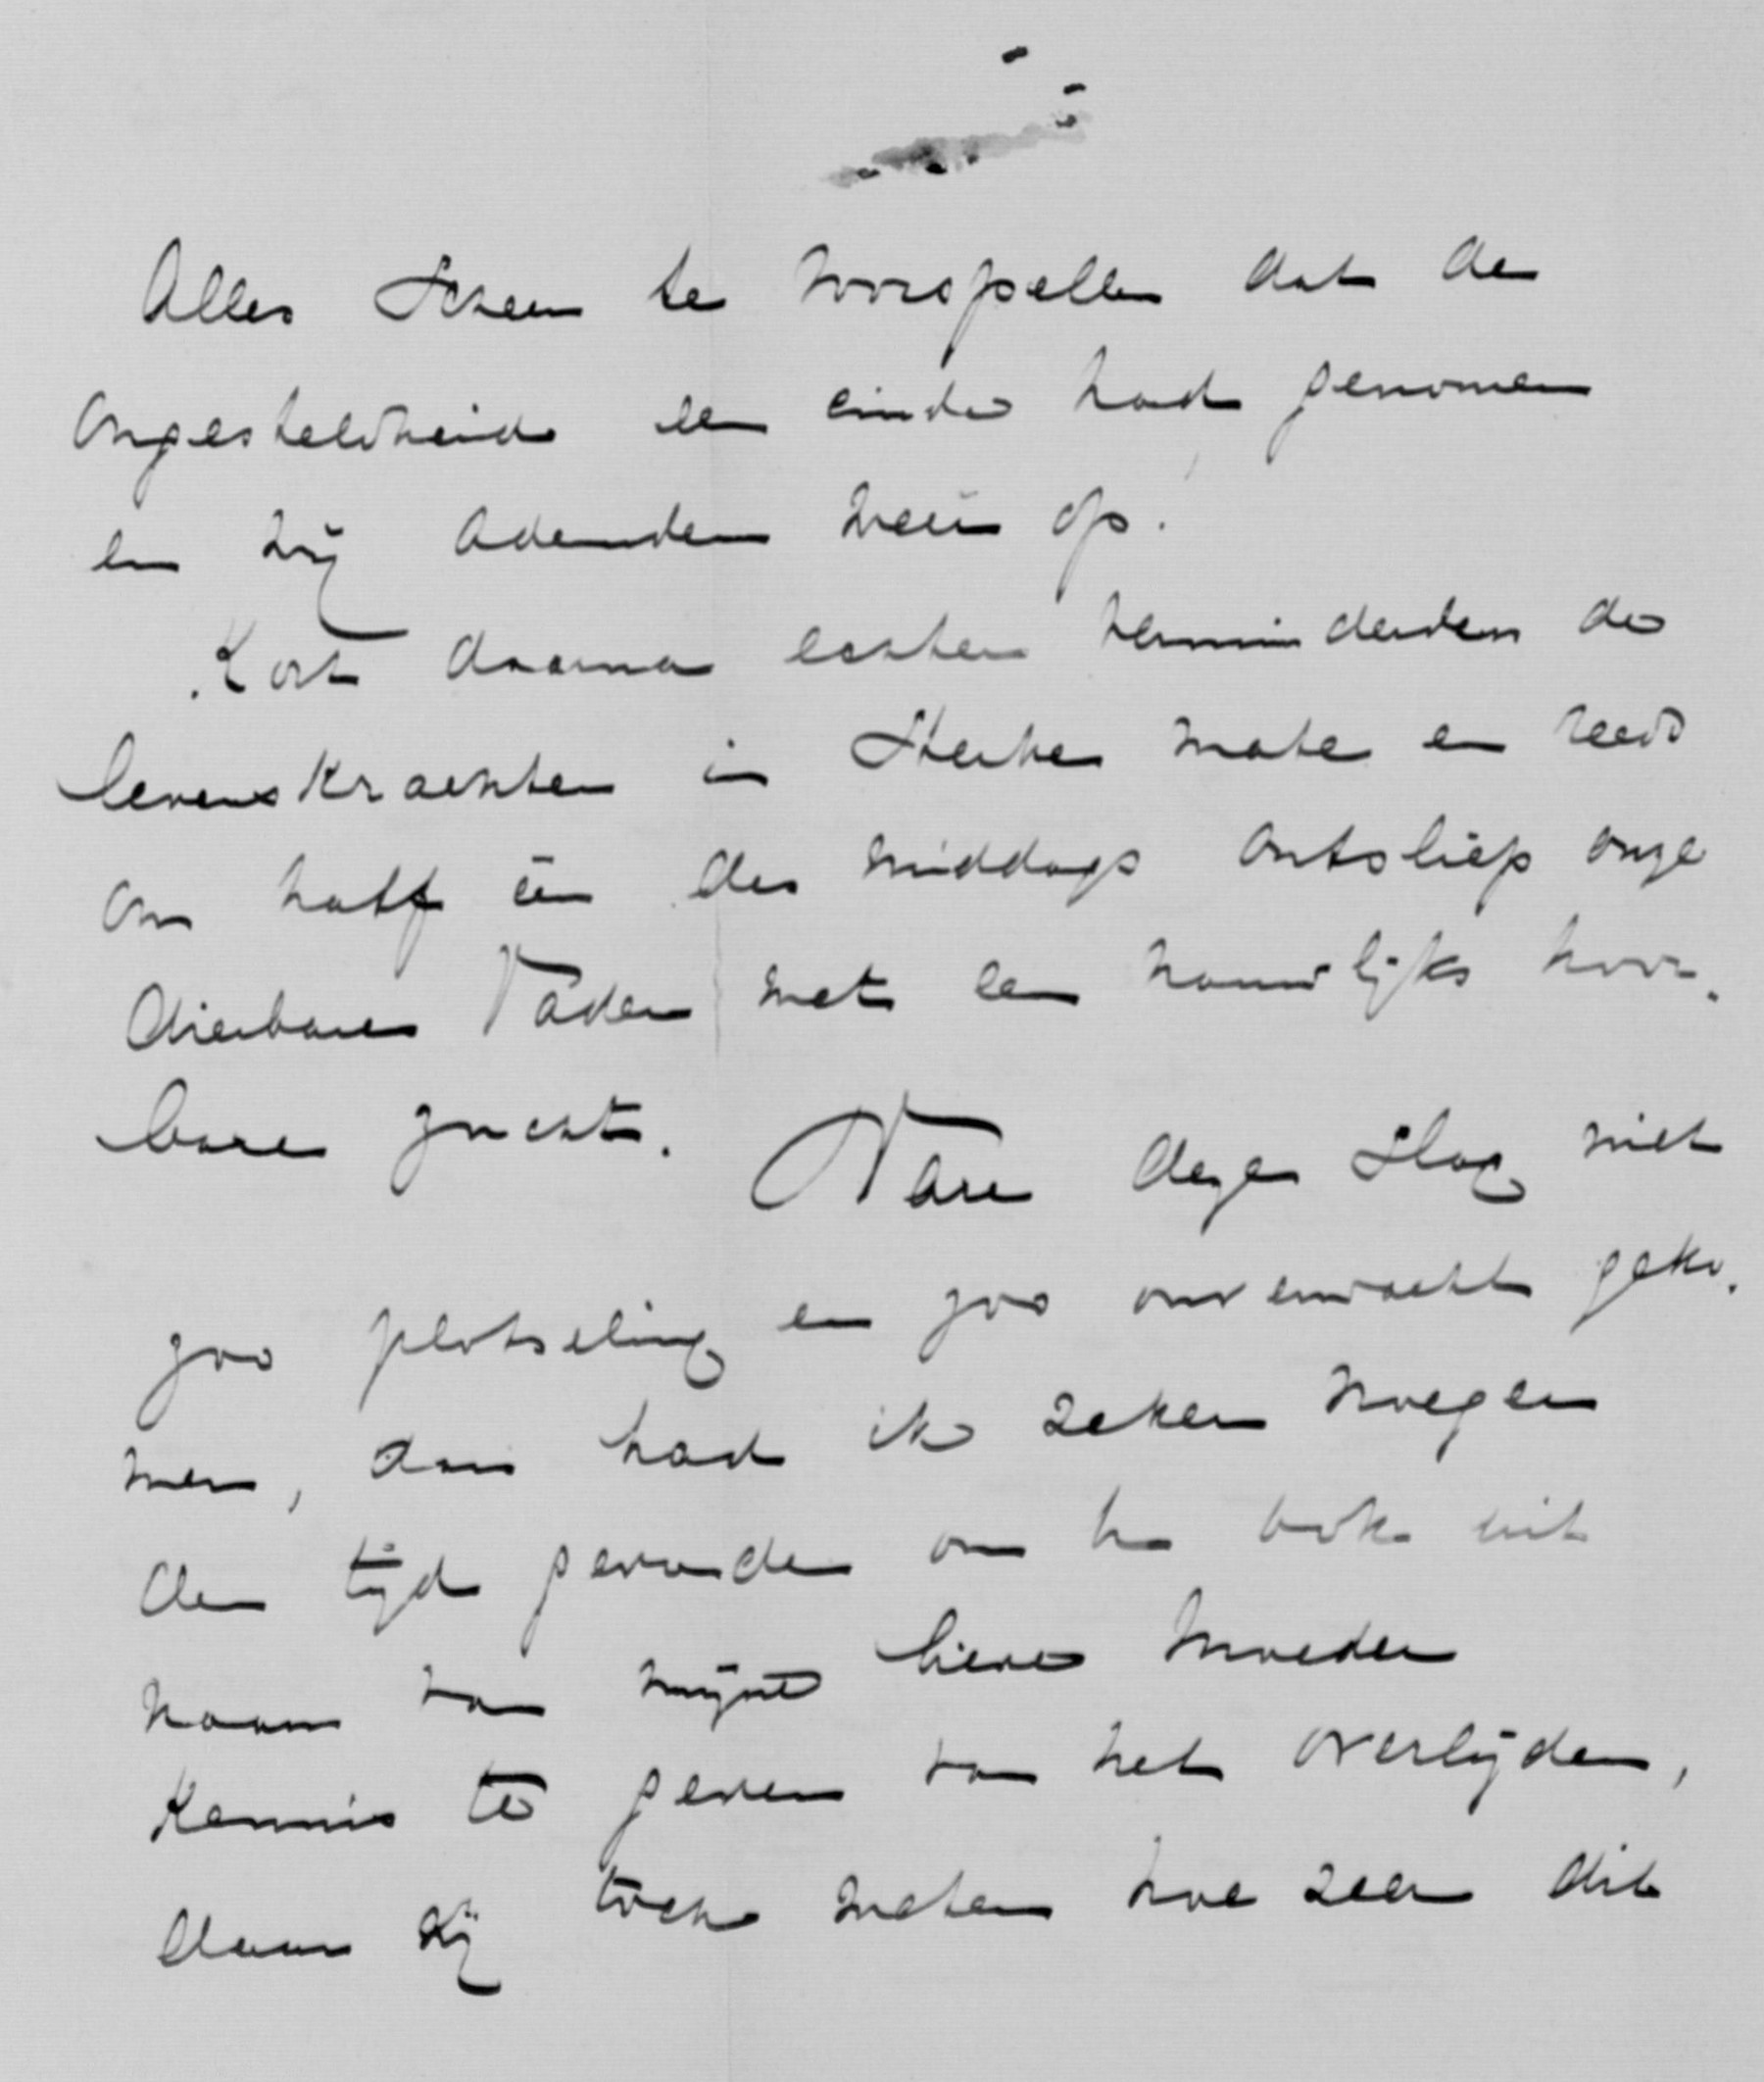 Alles scheen te voorspellen dat de
ongesteldheid een einde had genomen
en wij ademden weer op.
Kort daarna echter verminderden de
levenskrachten in sterke mate en reeds
om half één des middags ontsliep onze
dierbare Vader met een nauwlijks hoor-
bare zucht. Ware deze slag niet
zoo plotseling en zoo onverwacht geko-
men, dan had ik zeker vroeger
den tijd gevonden om U ook uit
naam van mijne lieve Moeder
kennis te geven van het overlijden,
daar wij toch weten hoe zeer dit